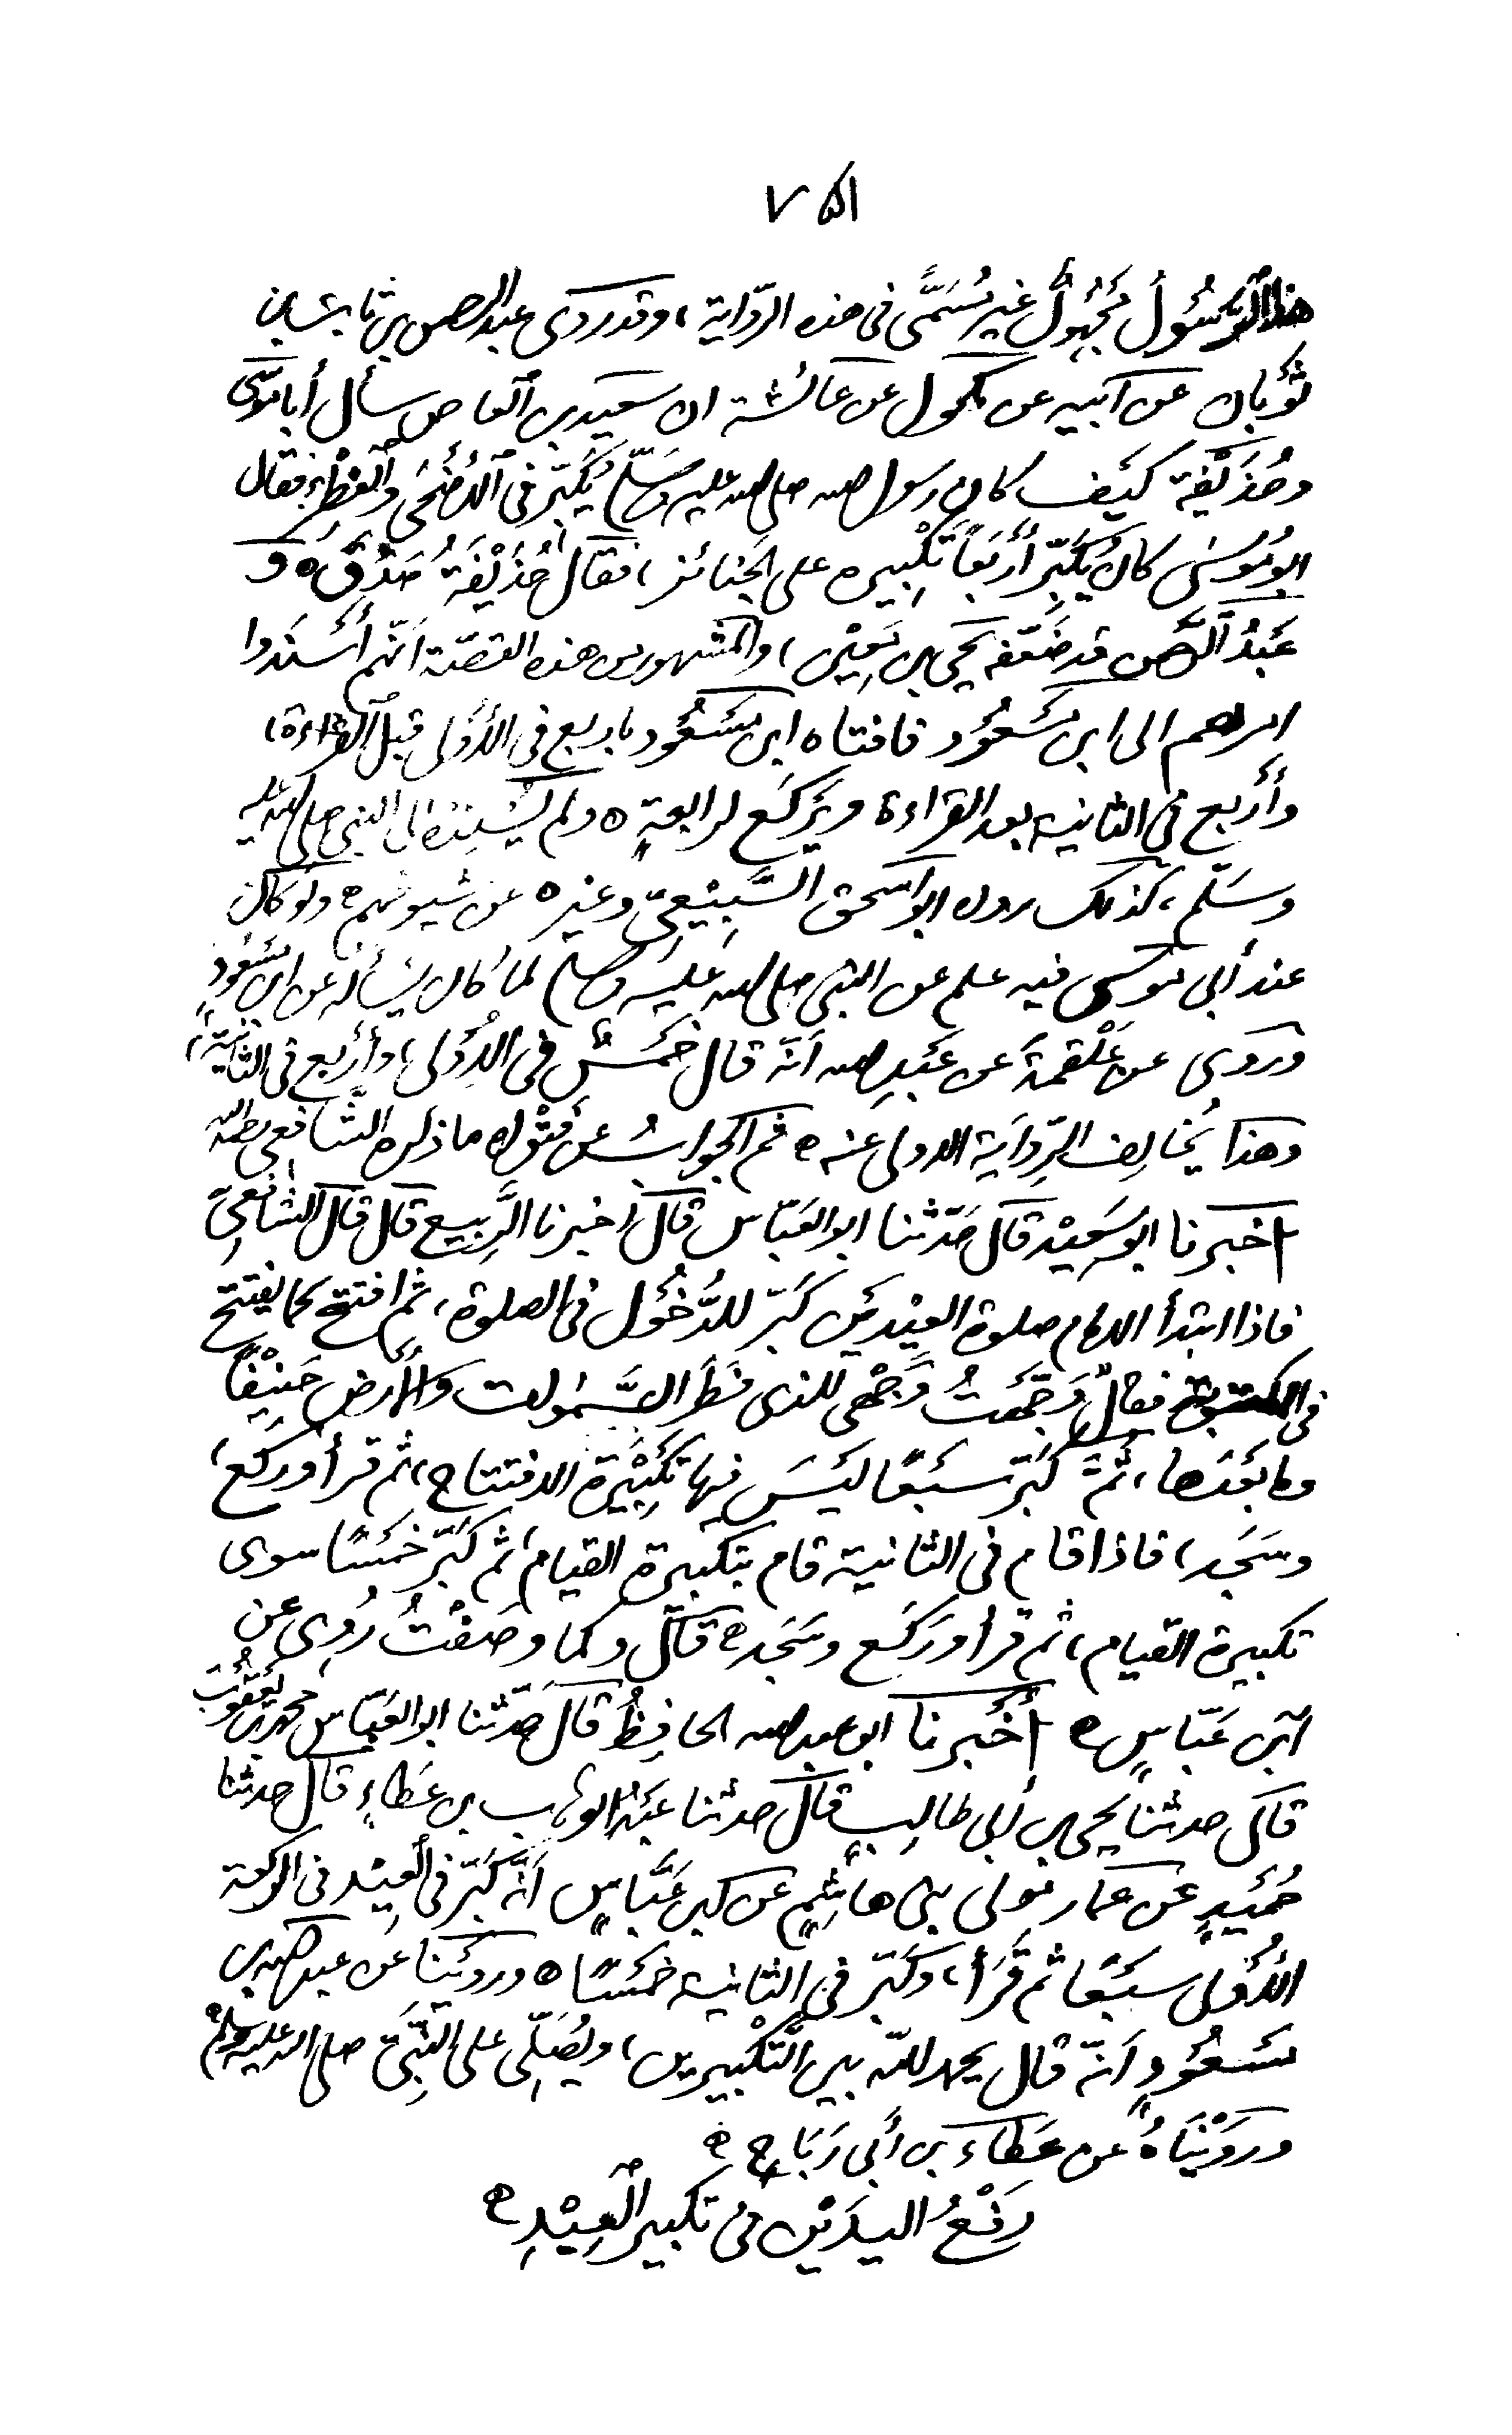 ٧٥١
هذا الرسُولُ مَجْهُولٌ غير مُسَمًّى فى هذه الرّواية، وقد روى عبد الرحمن بن ثابت بن
ثَوْبان عن أبيه عن مكحول عن عائشة ان سعيد بن العاص سأل أبا موسى
وحُذَيْفة كَيْف كان رسول الله صلى الله عليه وسلّم يُكَبّر فى الأَضْحَى والفِطْرِ، فقال
ابو مُوسَى كان يُكَبّر أَرْبَعًا تكْبِيره على الجنائز، فقال حُذَيْفَةُ صَدَقَ ه وَ
عَبْدُ الرَّحمن قد ضَعّفه يحيى بن مَعِيْن، والمشهور من هذه القصّة أنّهم أَسْنَدوا
امرهم الى ابن مَسْعُود فافتاه ابن مَسْعُود باربع فى الأُوْلى قبل القراءة،
وأَرْبع فى الثانية بعد القراءة ويَرْكَع لرابعةٍ ه ولم يُسْنِده الى النبى صلى الله عليه
وسَلّم، كذلك رواه ابو اسحق السَّبِيْعِىّ وغيره عن شيوخهم ه ولو كان
عند أبى موسى فيه علم عن النبى صلى الله عليه وسلم لما كان يَسْأله عن ابن مَسْعُودٍ
ورَوى عن عَلْقمةَ عن عَبْدِ الله أنّه قال خَمْسٌ فى الأُوْلى، وأَرْبع فى الثانية،
وهذا يُخالِف الرِّواية الاولى عنه ه ثم الجوابُ عن قَوْله ما ذكره الشّافعى رحمه الله
اخبرنا ابو سَعِيْد قال حَدّثنا ابو العَبّاس قال اخبرنا الرَّبِيع قال قال الشافعىّ
فاذا ابتدأ الامام صلوة العِيْدَيْن كَبّر للدُّخُول فى الصلوة، ثم افتتح كما يفتتح
فى المكتوبة فقال وَجَّهْتُ وَجْهِى للذى فَطَر السَّمٰوات والأَرض حَنِيْفًا
وما بَعْدَها، ثُمّ كَبّر سَبْعًا لَيْسَ فيها تكْبِيْرة الافتتاح، ثم قرأ وركع،
وسَجَد، فاذا قام فى الثانية قام بتكبيرة القيام، ثم كَبّر خَمْسًا سوى
تكبيرة القيام، ثم قرأ ورَكَع وسَجَد ه قال وكما وصَفْتُ رُوِى عن
ابن عَبّاسٍ ه أخْبرنا ابو عبد الله الحافِظُ قال حَدّثنا ابو العَبّاس محمد بن يَعْقُوبَ
قال حدثنا يحيى بن أبى طالِبٍ قال حدثنا عَبْد الوهاب بن عَطاءٍ قال حدثنا
حُمَيْدٍ عَن عمار مولى بنى هاشِمٍ عن ابن عَبَّاسٍ أنّه كَبّر فى العِيْد فى الركعة
الأُوْلى سَبْعًا ثم قَرَأ، وكَبّر فى الثانية خمْسًا ه ورَوَيْنا عن عبد الله بن
مَسْعُوْدٍ أنّه قال يحمد الله بين التَّكْبِيرين، ويُصَلِّى على النَّبِىّ صلى الله عليه وسلم
ورَوَيْنَاهُ عن عَطاء بن أَبى رَبَاحٍ ه
رَفْعُ اليدَيْن فى تكبير العِيْدِ ه